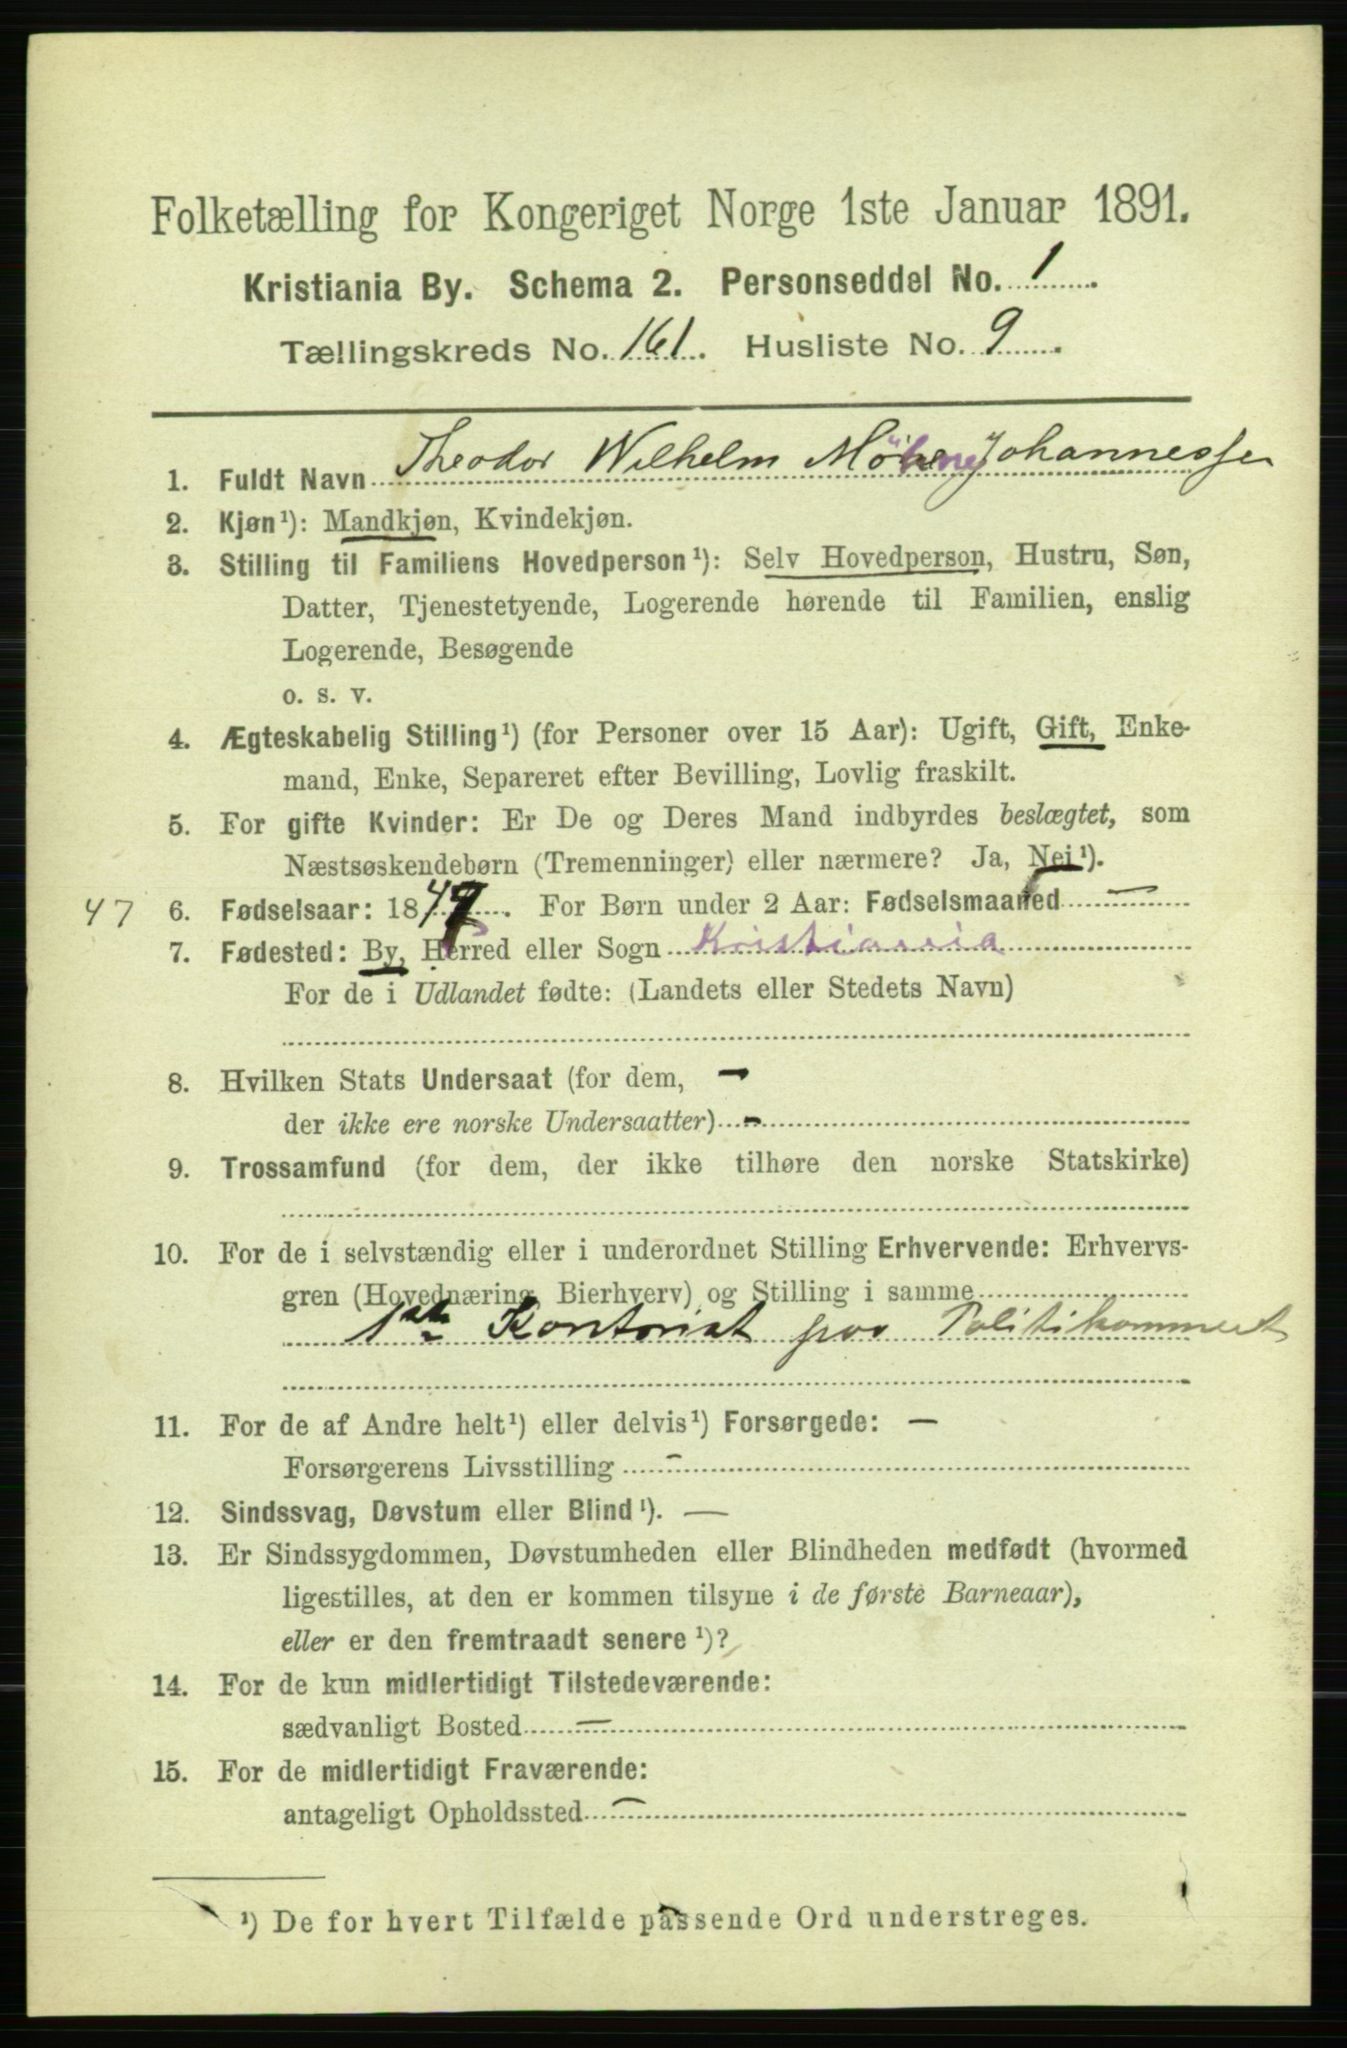 Folketælling for Kongeriget Norge 1ste Januar 1891.
Kristiania By. Schema 2. Personseddel No. 1.
Tællingskreds No. 161. Husliste No. 9.
1. Fuldt Navn Theodor Wilhelm Johannesse
2. Kjøn¹): Mandkjøn, Kvindekjøn.
3. Stilling til Familiens Hovedperson¹): Selv Hovedperson, Hustru, Søn,
Datter, Tjenestetyende, Logerende hørende til Familien, enslig
Logerende, Besøgende
o. s. v.
4. Ægteskabelig Stilling¹) (for Personer over 15 Aar): Ugift, Gift, Enke-
mand, Enke, Separeret efter Bevilling, Lovlig fraskilt.
5. For gifte Kvinder: Er De og Deres Mand indbyrdes beslægtet, som
Næstsøskendebørn (Tremenninger) eller nærmere? Ja, Nei¹).
47 6. Fødselsaar: 1849. For Børn under 2 Aar: Fødselsmaaned —
7. Fødested: By, Herred eller Sogn Kristiania
For de i Udlandet fødte: (Landets eller Stedets Navn)
8. Hvilken Stats Undersaat (for dem, —
der ikke ere norske Undersaatter) -
9. Trossamfund (for dem, der ikke tilhøre den norske Statskirke)
10. For de i selvstændig eller i underordnet Stilling Erhvervende: Erhvervs-
gren (Hovednæring, Bierhverv) og Stilling i samme
1ste Kontorist paa Politikammeret
11. For de af Andre helt¹) eller delvis¹) Forsørgede: —
Forsørgerens Livsstilling —
12. Sindssvag, Døvstum eller Blind¹). —
13. Er Sindssygdommen, Døvstumheden eller Blindheden medfødt (hvormed
ligestilles, at den er kommen tilsyne i de første Barneaar),
eller er den fremtraadt senere¹)?
14. For de kun midlertidigt Tilstedeværende:
sædvanligt Bosted —
15. For de midlertidigt Fraværende:
antageligt Opholdssted —
¹) De for hvert Tilfælde passende Ord understreges.